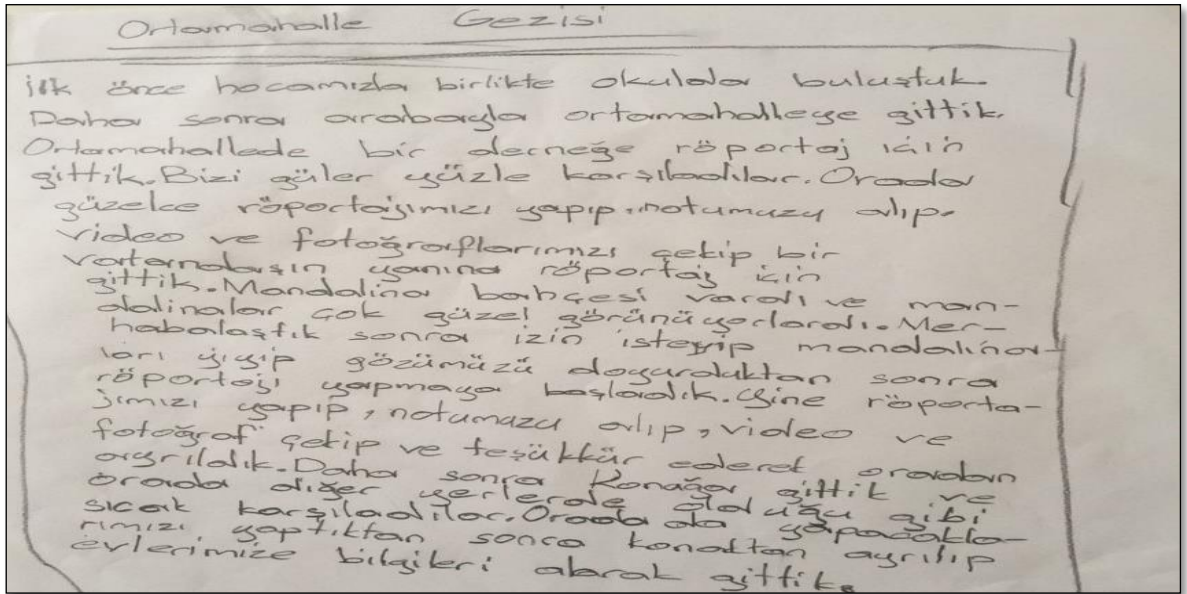 Ortamahalle Gezisi
ilk önce hocamızla birlikte okulda buluştuk.
Daha sonra arabayla ortamahalleye gittik.
Ortamahallede bir derneğe röportaj için
gittik. Bizi güler yüzle karşıladılar. Orada
güzelce röportajımızı yapıp, notumuzu alıp,
video ve fotoğraflarımızı çekip bir
vatandaşın yanına röportaj için
gittik. Mandalina bahçesi vardı ve man-
dalinalar çok güzel görünüyorlardı. Mer-
habalaştık sonra izin isteyip mandalina-
ları yiyip gözümüzü doyurduktan sonra
röportajı yapmaya başladık. Yine röporta-
jımızı yapıp, notumuzu alıp, video ve
fotoğraf çekip ve teşükkür ederek oradan
ayrıldık. Daha sonra Konağa gittik ve
orada diğer yerlerde olduğu gibi
sıcak karşıladılar. Orada da yapacakla-
rımızı yaptıktan sonra konaktan ayrılıp
evlerimize bilgileri alarak gittik.